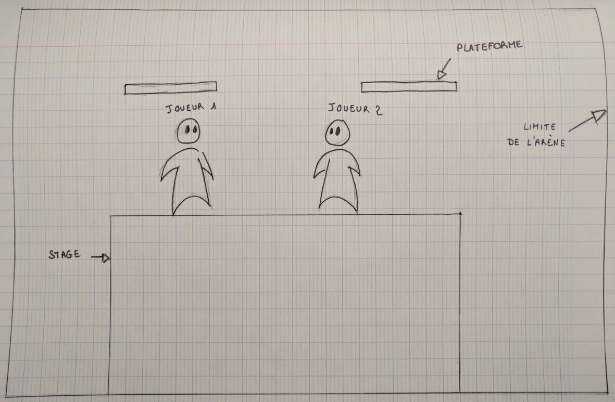 PLATEFORME
JOUEUR 1
JOUEUR 2
LIMITE
DE L'ARÈNE
STAGE